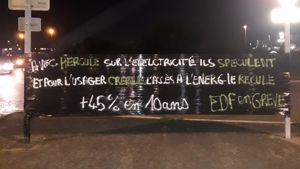 AVEC HERCULE SUR L'ELECTRICITÉ ILS SPECULENT
ET POUR L'USAGER L'ACCÈS A L'ENERGIE RECULE
+45% en 10 ans EDF en GREVE